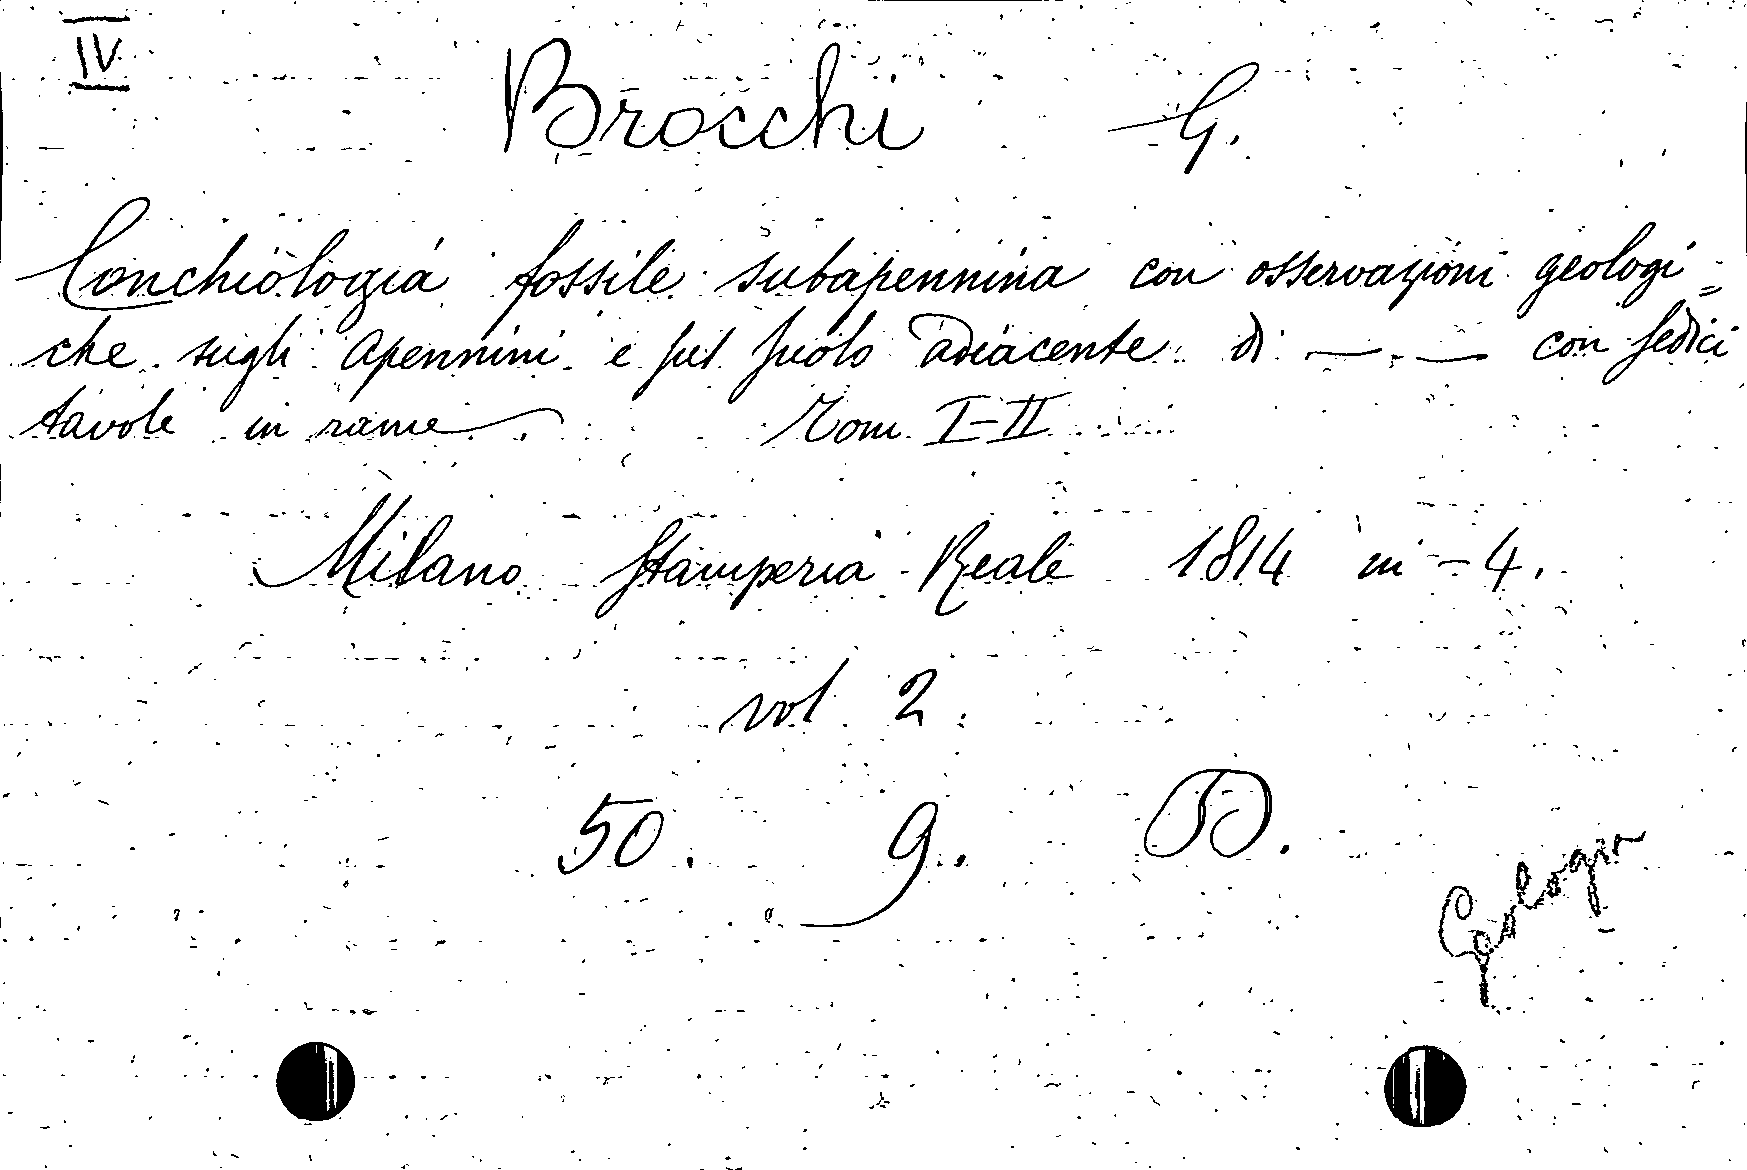 IV
Brocchi G.
Conchiologia fossile subapennina con osservazioni geologi=
che sugli Apennini e sul suolo adiacente di —.— con sedici
tavole in rame Tom. I-II
Milano Stamperia Reale 1814 in-4.
vol. 2.
50. 9. D.
Geologia